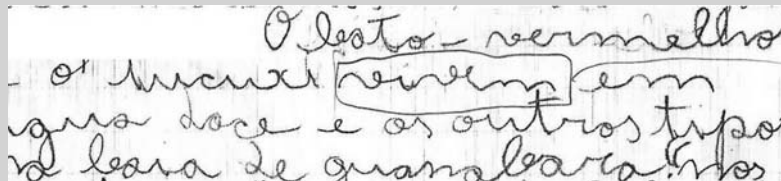 O boto - vermelho
o tucuxi vivem em
agua doce e os outros tipo
na baia de guanabara "nos